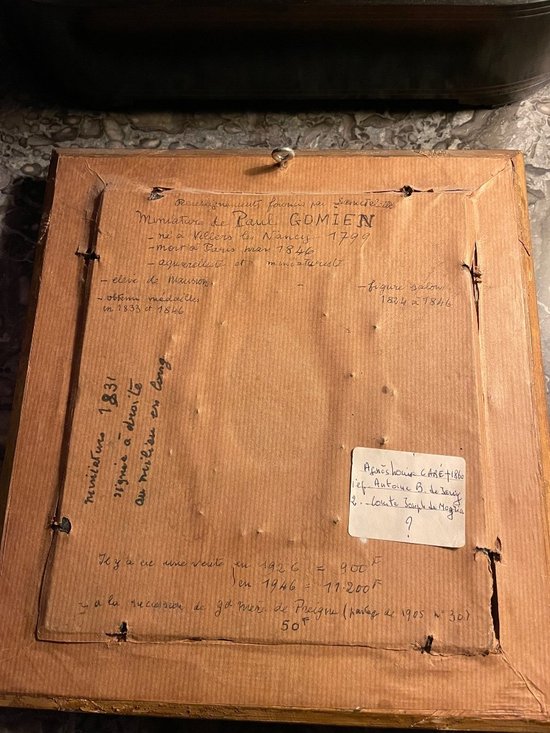 Renseignements fournis par
Miniature de Paul GOMIEN
- né à Villers les Nancy 1799
- mort à Paris mar 1846
- aquarelliste et miniaturiste
- élève de Mausson
- figure salon
1824 à 1846
- obtenu médailles
en 1833 et 1846
miniature 1831
signée à droite
au milieu en long
Agnès Louise CARÉ + 1860
1° ef. Antoine B. de
2. - Comte Joseph de
?
Il y a eu une vente en 1926 = 900F
en 1946 = 11.200F
à la succession de gd mère de (partage de 1905 n° 30)
50F